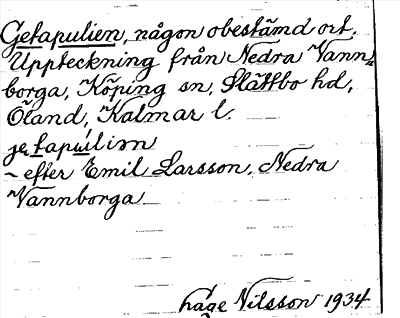 Getapulien, någon obestämd ort.
Uppteckning från Nedra Vann-
borga, Köping sn, Slättbo hd,
Öland, Kalmar l.
jetapúlien
~ efter Emil Larsson, Nedra
Vannborga
håge Nilsson 1934